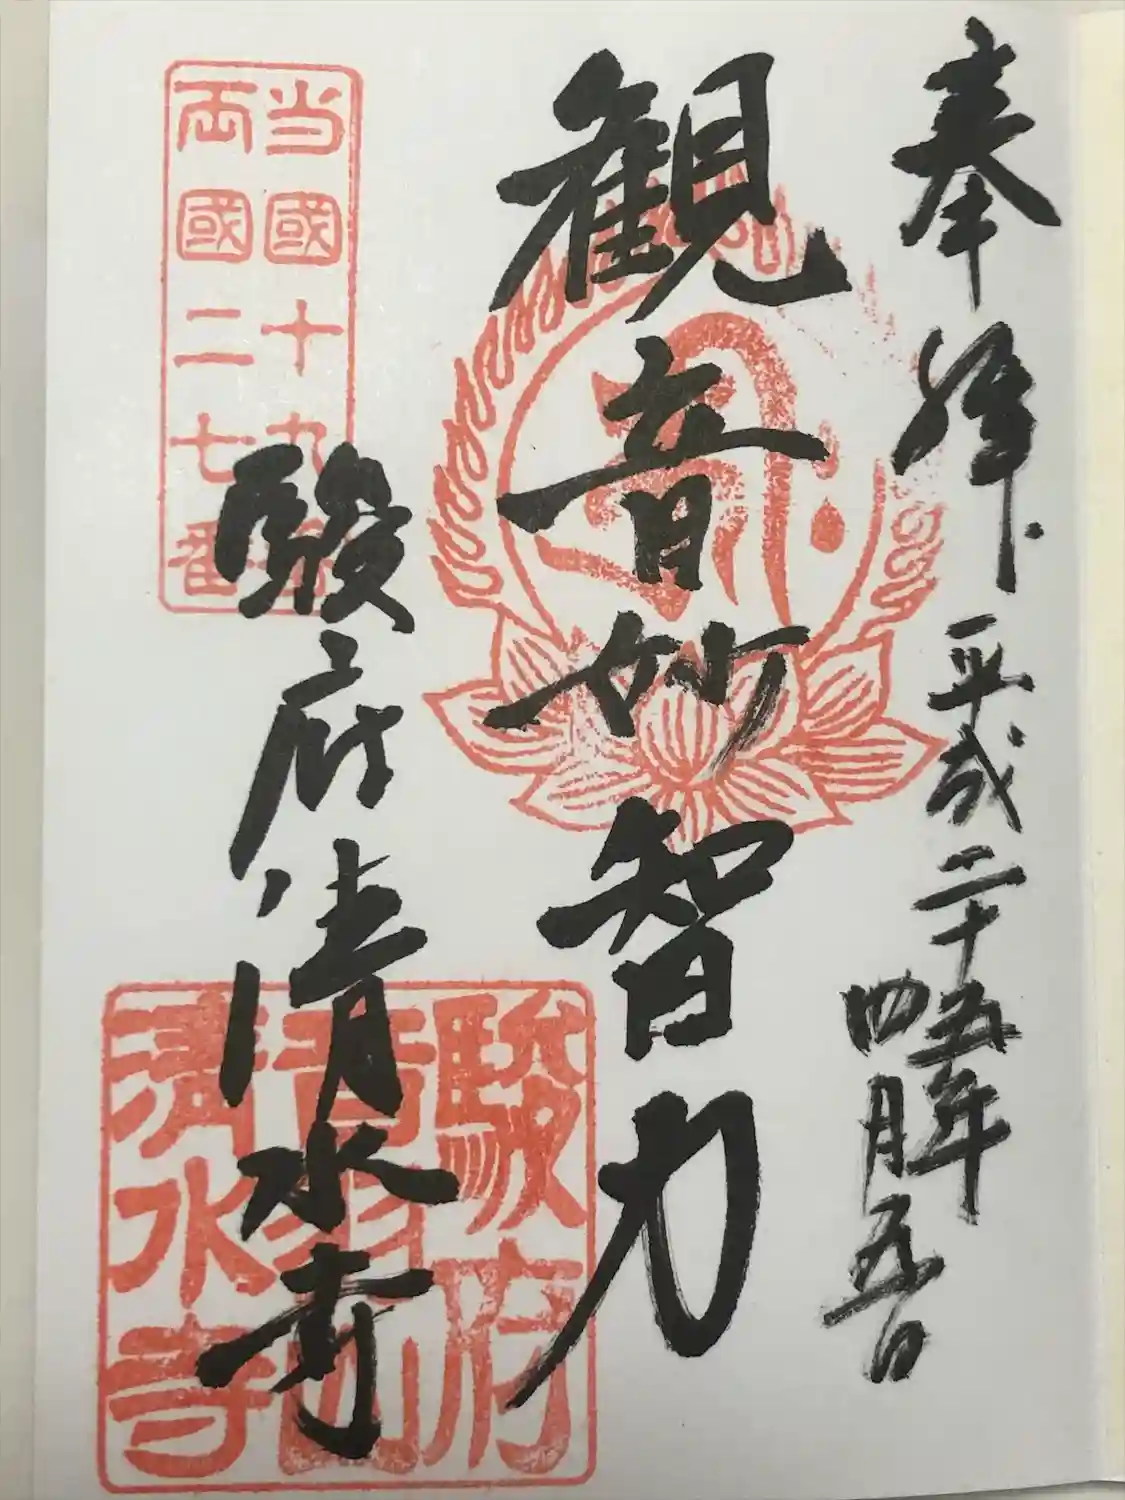 奉拝
平成二十五年
四月五日
観音妙智力
駿府清水寺
当國十九番
両國二七番
駿府
音羽山
清水寺